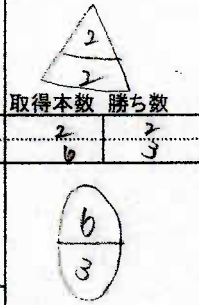 2
2
取得本数 勝ち数
2 2
6 3
6
3